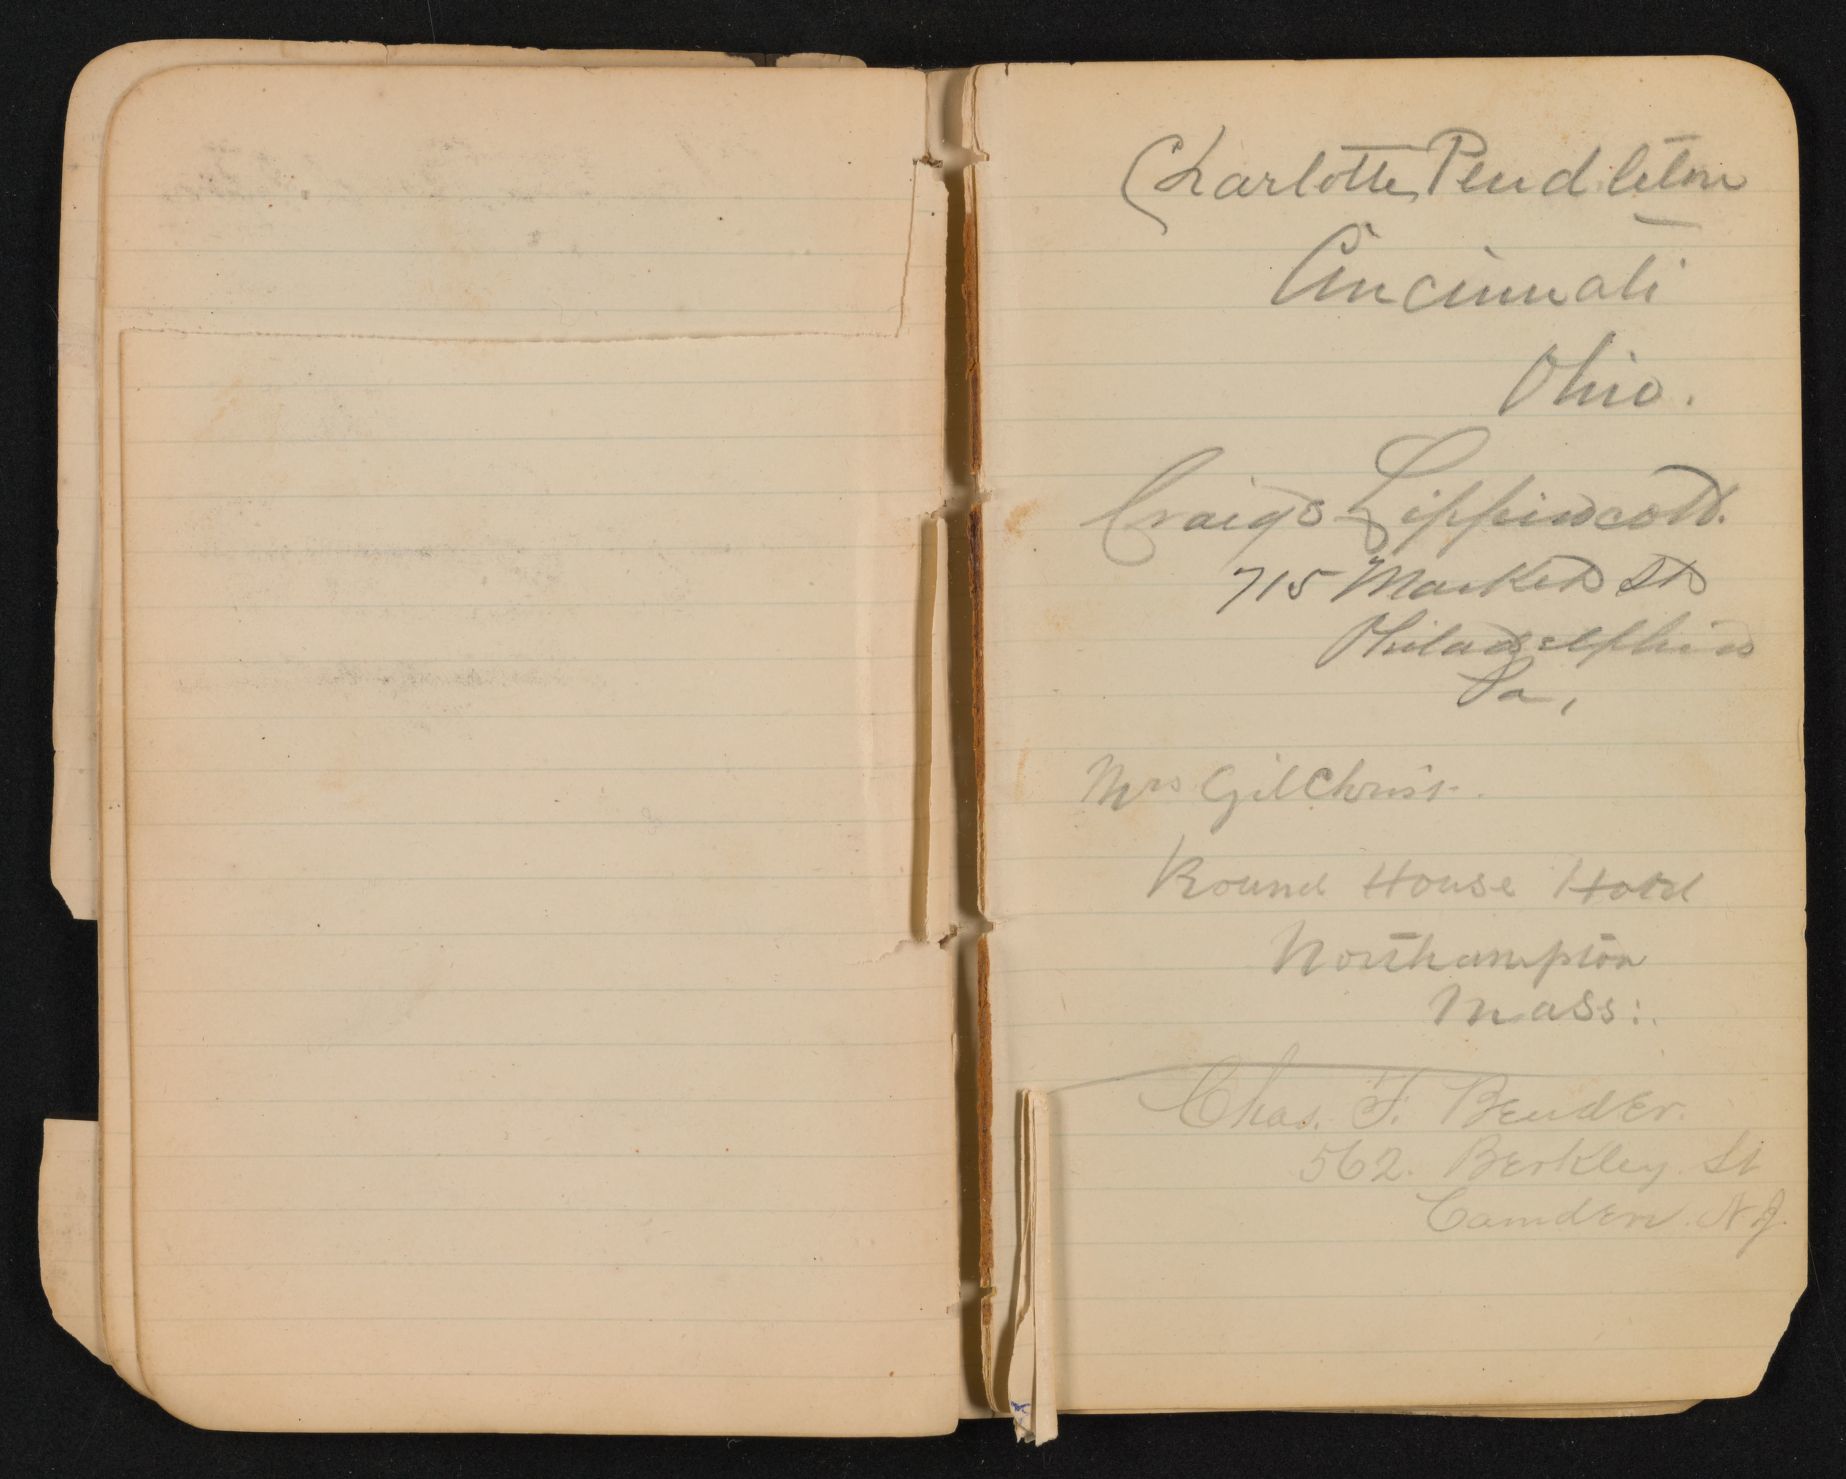 Charlotte Pendleton
Cincinnati
Ohio.
Craige Lippincott.
715 Market St
Philadelphia
Pa,
Mrs Gilchrist.
Round House Hotel
Northampton
Mass:.
Chas. F. Bender.
562. Berkley St
Camden. N.J.